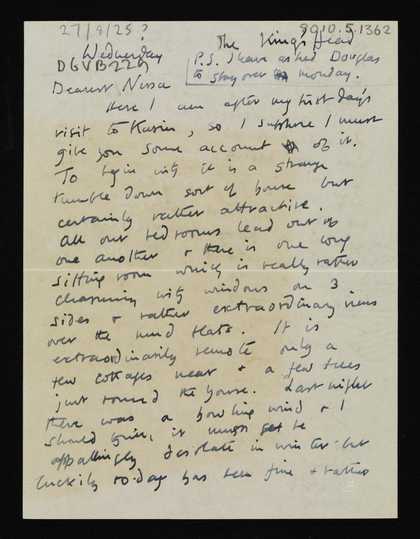 27/9/25?
9010.5.1362
Wednesday
The King's Head
DGVB229
P.S. I have asked Douglas
to stay over monday.
Dearest Nessa
Here I am after my first day's
visit to Karin, so I suppose I must
give you some account of it.
To begin with it is a strange
tumble down sort of house but
certainly rather attractive.
All our bedrooms lead out of
one another & there is one long
sitting room which is really rather
charming with windows on 3
sides & rather extraordinary views
over the mud flats. It is
extraordinarily remote only a
few cottages near & a few trees
just round the house. Last night
there was a howling wind & I
should think it must be
appallingly desolate in winter but
luckily to-day has been fine & rather